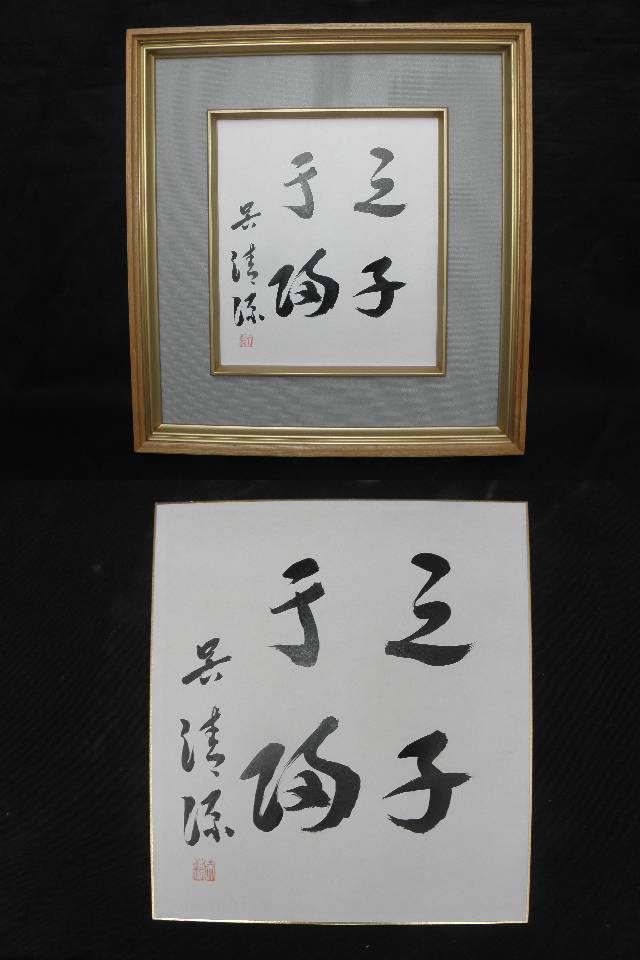 之子
于帰
呉清源
之子
于帰
呉清源